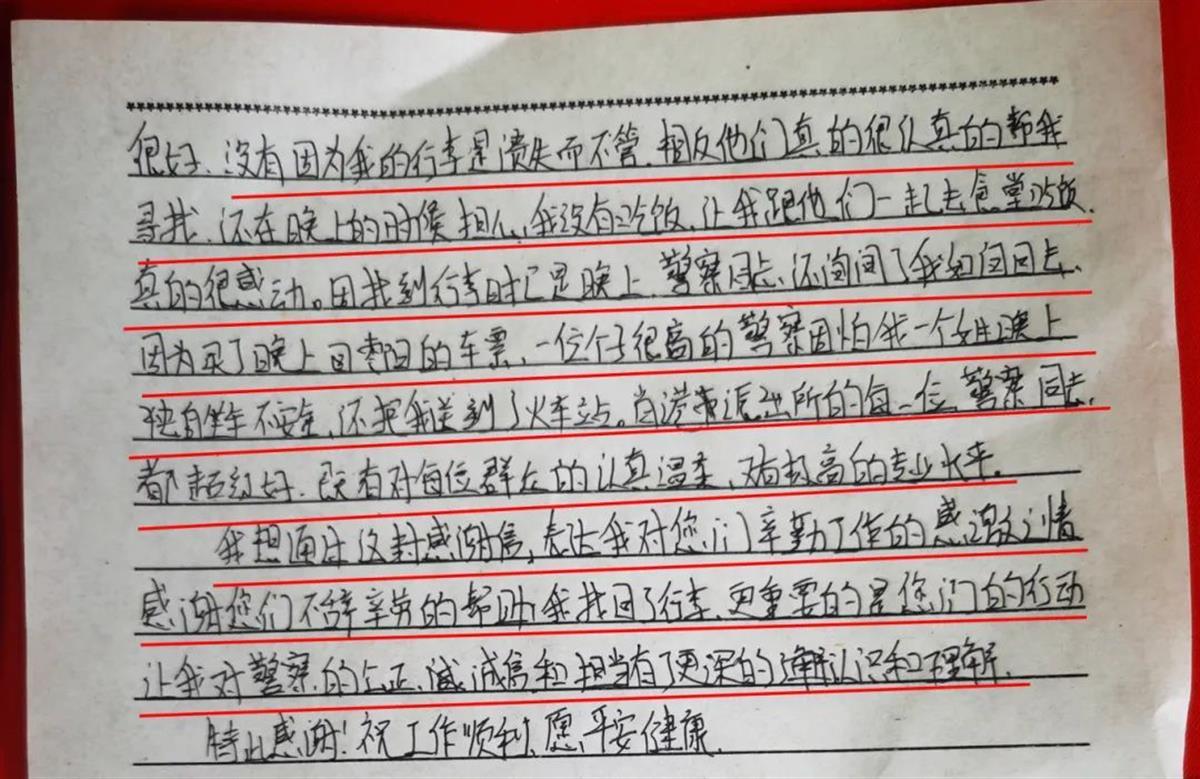 很好、没有因为我的行李是遗失而不管、相反他们真的很认真的帮我
寻找、还在晚上的时候担心我没有吃饭、让我跟他们一起去食堂吃饭、
真的很感动。因找到行李时已是晚上、警察同志、还询问了我如何回去、
因为买了晚上回枣阳的车票、一位个子很高的警察因怕我一个女生晚上
独自坐车不安全、还把我送到了火车站。肖港派出所的每一位警察同志、
都超级好、既有对每位群众的认真温柔、又有极高的专业水平。
我想通过这封感谢信、表达我对您们辛勤工作的感激之情
感谢您们不辞辛劳的帮助我找回了行李、更重要的是您们的行动
让我对警察的公正、诚信和担当有了更深的认识和理解、
特此感谢!祝工作顺利、愿平安健康、